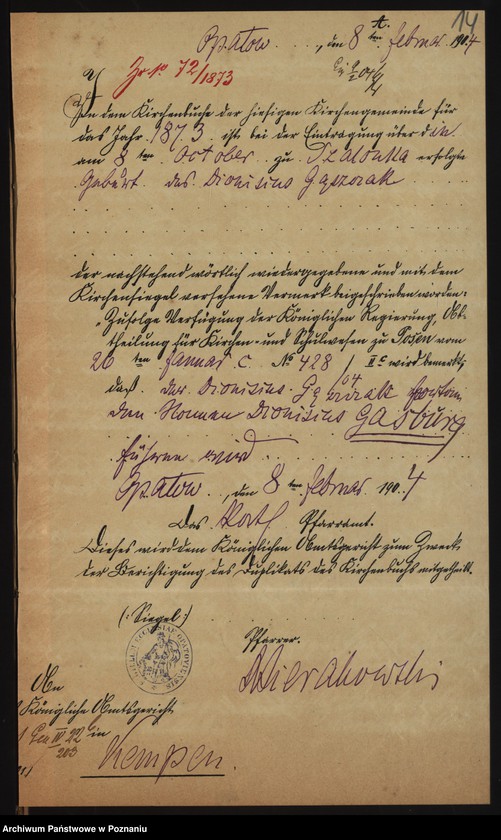 14
Opatow, den 8ten Februar 1904
Zu No 72/1873
In dem Kirchenbuche der hiesigen Kirchengemeinde für
das Jahr 1873 ist bei der Eintragung über die
am 8ten October zu Szalonka erfolgte
Geburt des Dionisius Gąszczak
der nachstehend wörtlich wiedergegebene und mit dem
Kirchensiegel versehene Vermerk beigeschrieben worden:
"Zufolge Verfügung der Königlichen Regierung, Ab-
theilung für Kirchen- und Schulwesen zu Posen vom
26ten Januar c. No 428/04 IIc wird bemerkt,
daß der Dionisius fortan
den Namen Dionisius Gasburg
führen wird
Opatow, den 8ten Februar 1904
Das Kath. Pfarramt.
Dieses wird dem Königlichen Amtsgericht zum Zweck
der Berichtigung des Duplikats des Kirchenbuchs mitgetheilt.
(Siegel)
Pfarrer.
Wierakowski
An
Königliche Amtsgericht
in
Kempen.
Archiwum Państwowe w Poznaniu